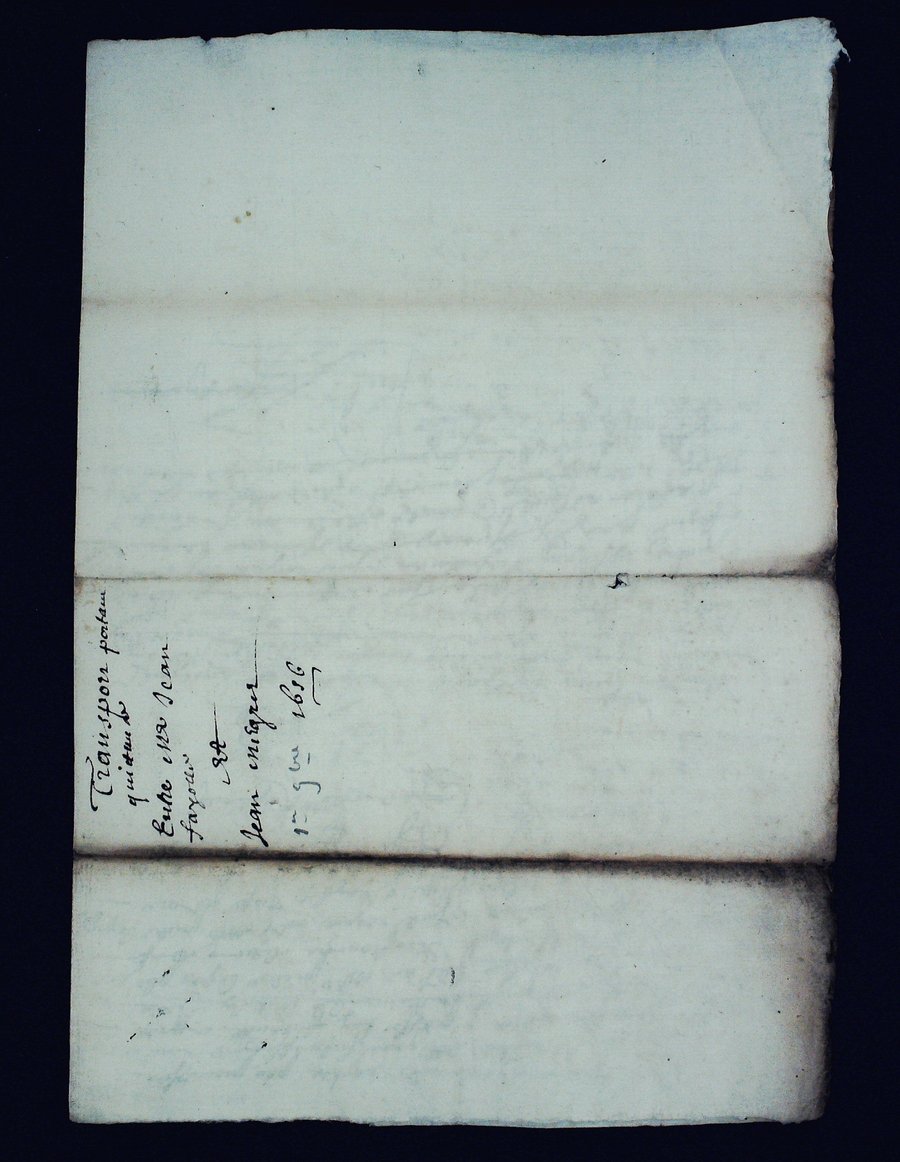 Transport portant
quictance
Entre Mr Jean
fayolle
Et
Jean
1er 9bre 1656